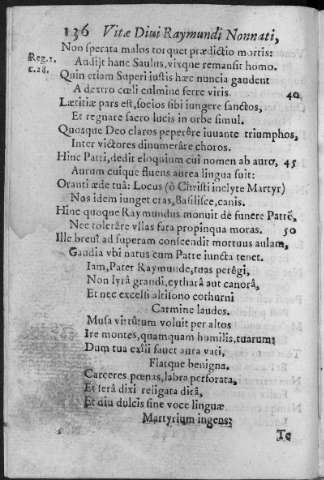 136 Vitæ Diui Raymundi Nonnati,
Non sperata malos torquet prædictio mortis:
Reg. 1. c. 28. Audijt hanc Saulus, vixque remansit homo.
Quin etiam Superi iustis hæc nuncia gaudent
A dextro cœli culmine ferre viris. 40
Lætitiæ pars est, socios sibi iungere sanctos,
Et regnare sacro lucis in orbe simul.
Quosque Deo claros peperêre iuuante triumphos,
Inter victores dinumerâre choros.
Hinc Patri, dedit eloquium cui nomen ab auro, 45
Aurum cuique fluens aurea lingua fuit:
Oranti æde tuâ: Locus (ô Christi inclyte Martyr)
Nos idem iunget cras, Basilisce, canis.
Hinc quoque Raymundus monuit dè funere Patrē,
Nec tolerâre vllas fata propinqua moras. 50
Ille breui ad superam conscendit mortuus aulam,
Gaudia vbi natus cum Patre iuncta tenet.
Iam, Pater Raymunde, tuas perêgi,
Non lyrâ grandi, cytharâ aut canorâ,
Et nec excelsi altisono cothurni
Carmine laudes.
Musa virtûtum voluit per altos
Ire montes, quamquam humilis, tuarum:
Dum tua exsíi fauet aura vati,
Flatque benigna.
Carceres pœnas, labra perforata,
Et serâ dixi religata dirâ,
Et diu dulcis sine voce linguæ
Martyrium ingens:
Te